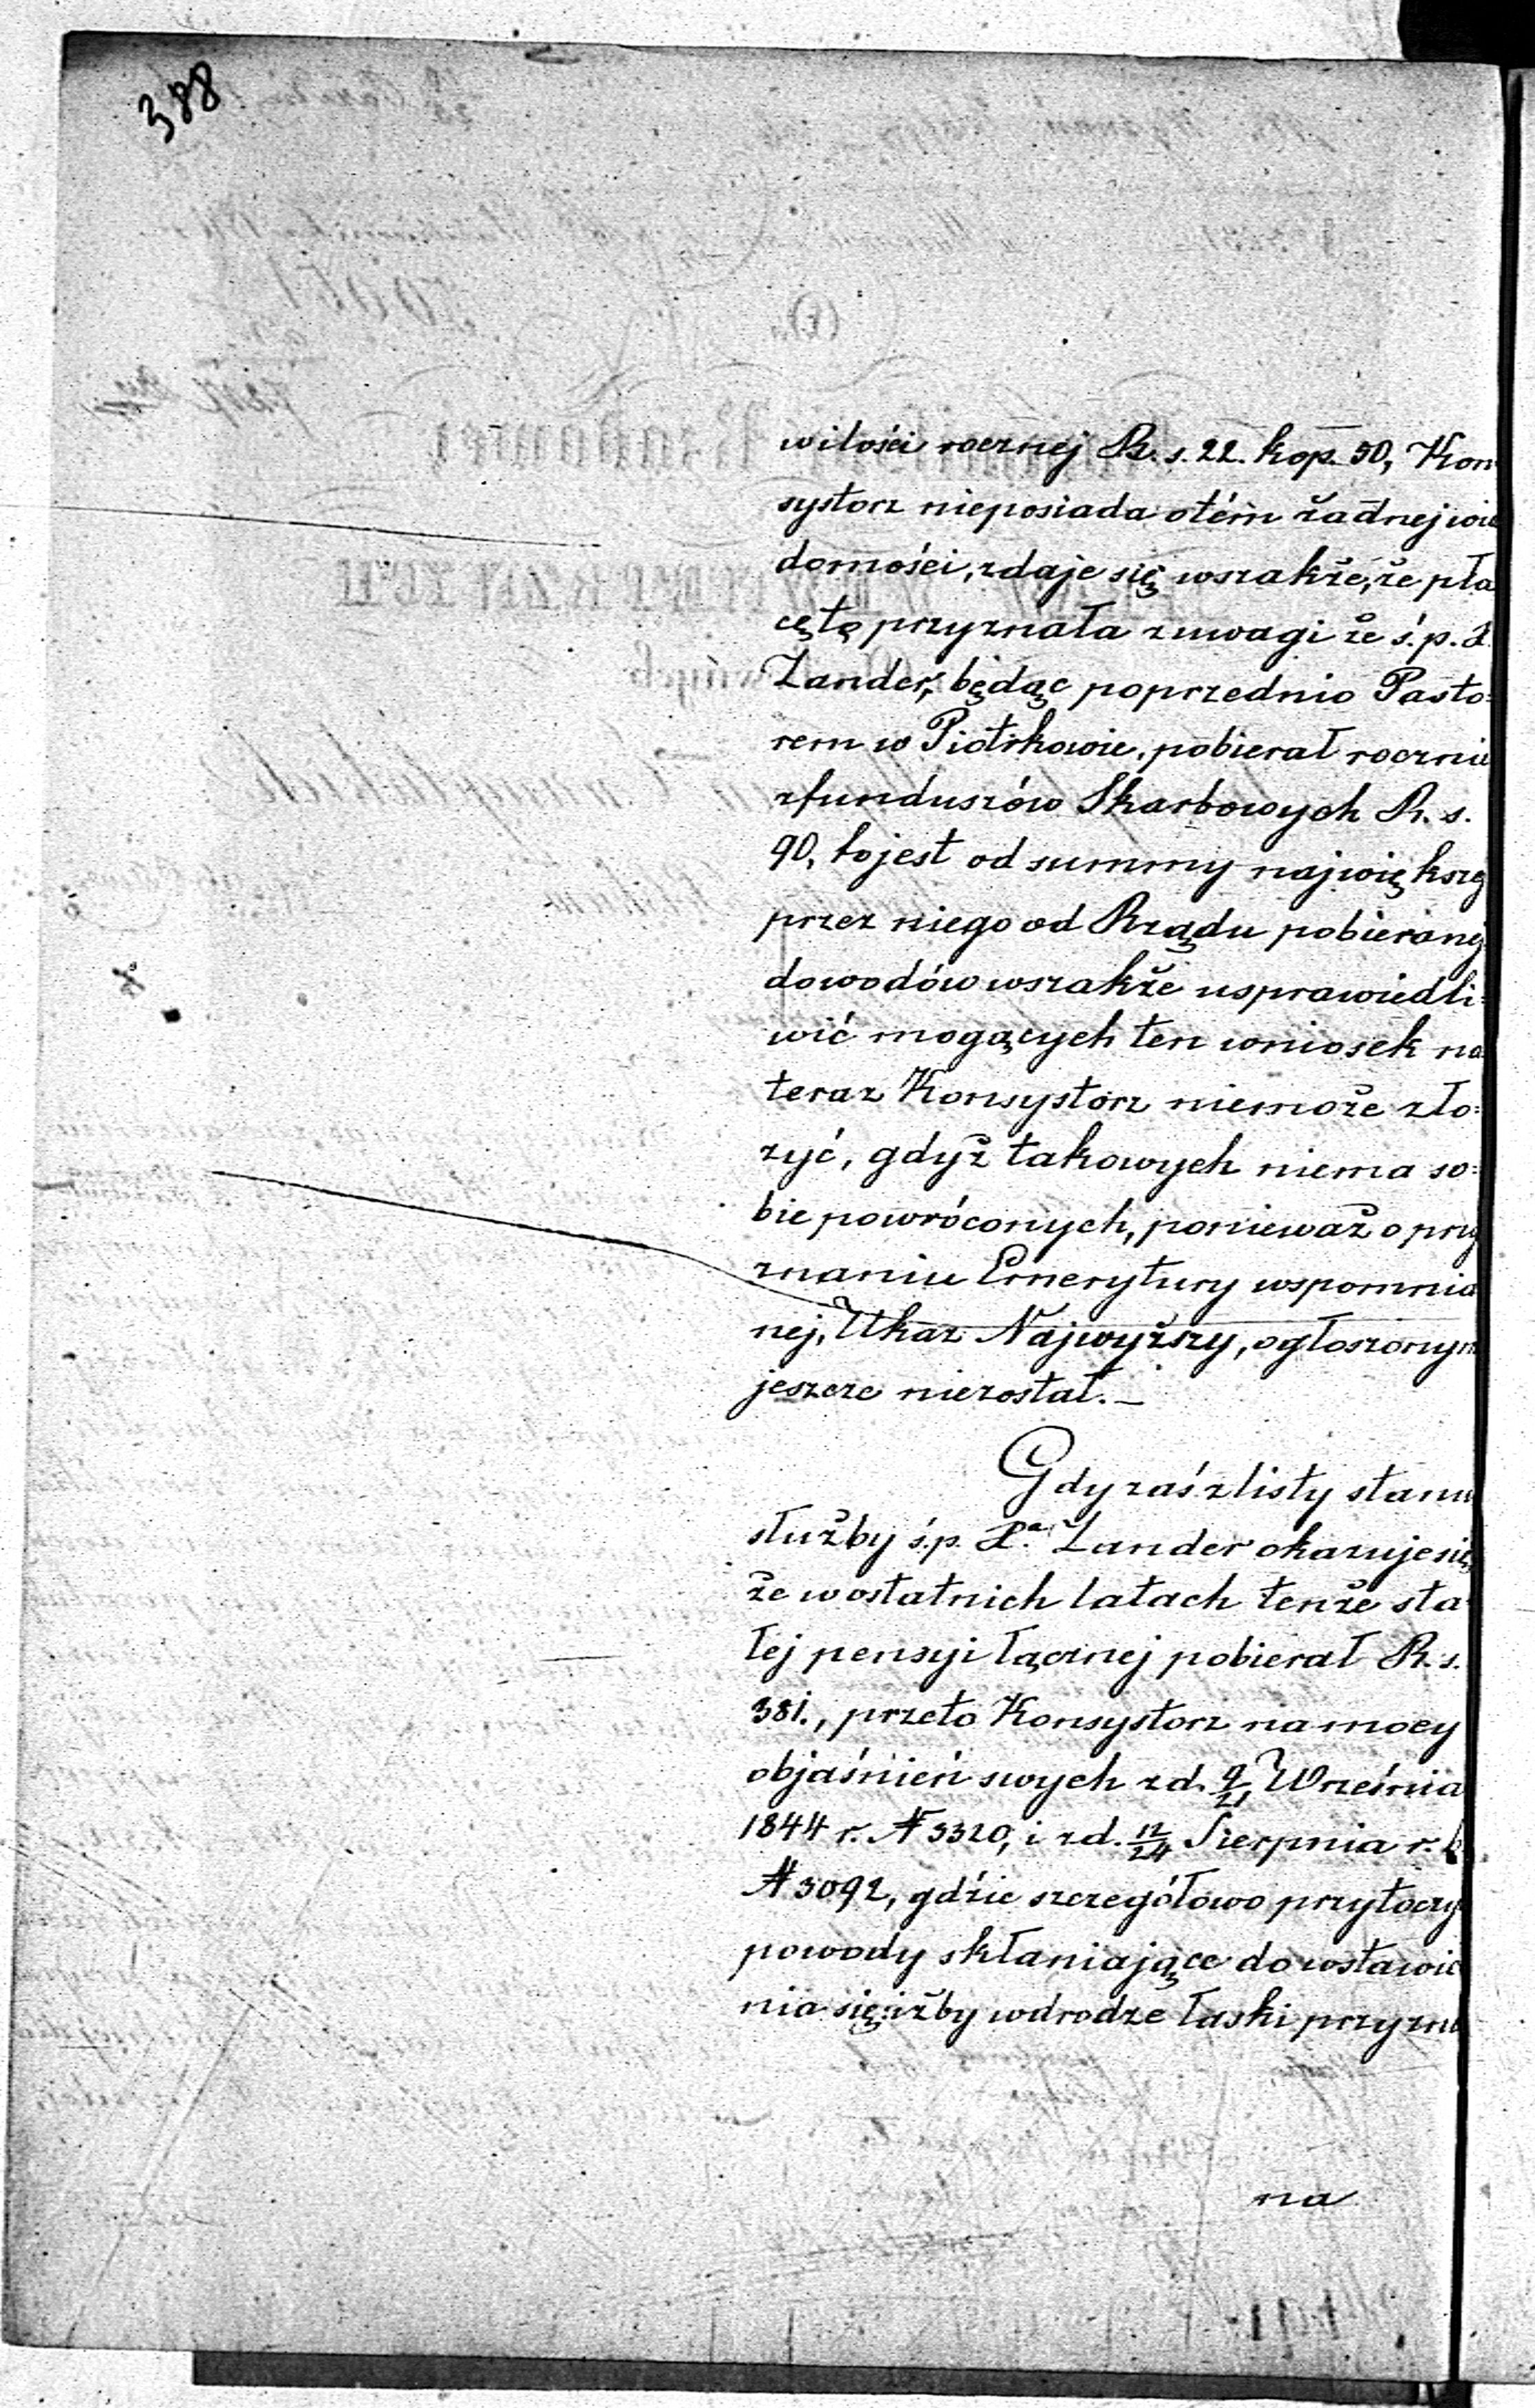 388
wilości rocznej R. s. 22. kop. 50, Kon
systorz nieposiada otém żadnej wia
domości, zdaje się wszakże, że pła
cę tę przyznała z uwagi że ś. p. X
Zander, będąc poprzednio Pasto=
rem w Piotrkowie, pobierał rocznie
z funduszów Skarbowych R. s.
90, to jest od summy największej
przez niego od Rządu pobieranej
dowodów wszakże usprawiedli=
wić mogących ten wniosek na
teraz Konsystorz niemoże zło=
żyć, gdyż takowych niema so=
bie powróconych, ponieważ o przy
znaniu Emerytury wspomnia
nej, Ukaz Najwyższy, ogłoszonym
jeszcze niezostał. —
Gdy zaś z listy stanu
służby ś. p. X.ª Zander okazuje się,
że w ostatnich latach tenże sta
łej pensyi łącznej pobierał R. s.
381., przeto Konsystorz na mocy
objaśnień swych z d. 9/21 Września
1844 r. N 3320, i z d. 12/24 Sierpnia r. b.
N 3092, gdzie szczegółowo przytoczył
powody skłaniające do wstawie
nia się, iżby w drodze łaski przyzna
na